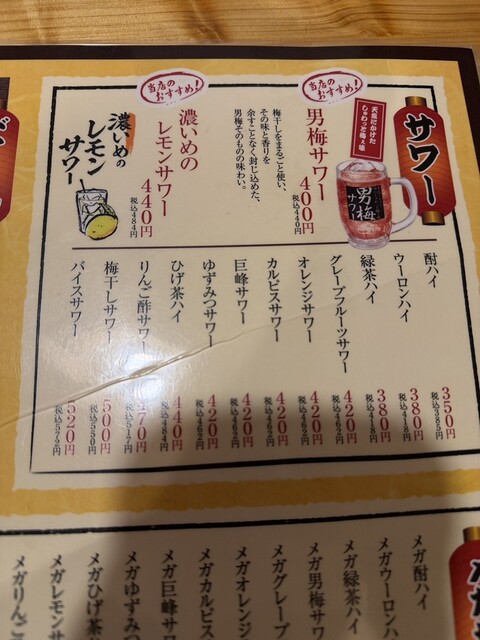 サワー
天塩にかけた
しゅわっと梅ぇ味
男梅サワー
当店の
おすすめ!
男梅サワー
400円
税込440円
梅干しをまるごと使い、
その味と香りを
余すことなく封じ込めた、
男梅そのものの味わい。
当店の
おすすめ!
濃いめの
レモンサワー
440円
税込484円
濃いめの
レモン
サワー
酎ハイ 350円 税込385円
ウーロンハイ 380円 税込418円
緑茶ハイ 380円 税込418円
グレープフルーツサワー 420円 税込462円
オレンジサワー 420円 税込462円
カルピスサワー 420円 税込462円
巨峰サワー 420円 税込462円
ゆずみつサワー 420円 税込462円
ひげ茶ハイ 440円 税込484円
りんご酢サワー 470円 税込517円
梅干しサワー 500円 税込550円
バイスサワー 520円 税込572円
メガ酎ハイ
メガウーロンハ
メガ緑茶ハイ
メガ男梅サワ
メガグレープ
メガオレンジ
メガカルピス
メガ巨峰サワ
メガゆずみつ
メガひげ茶ハ
メガレモンサ
メガりんご